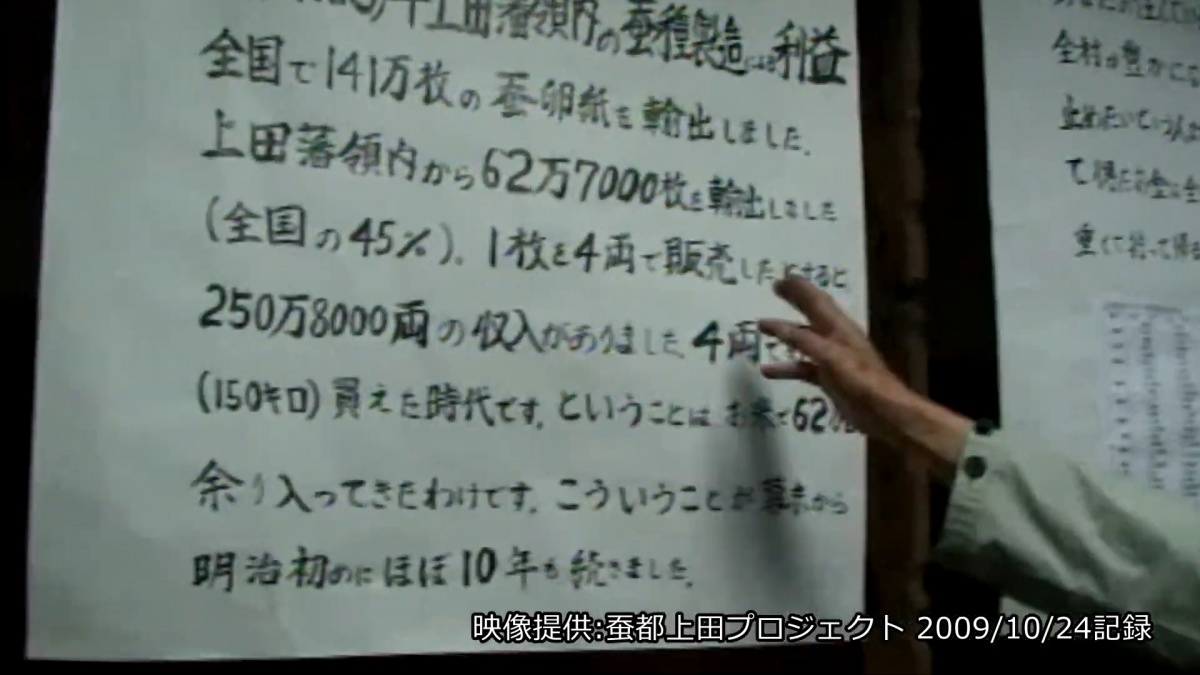 年上田藩領内の蚕種製造による利益
全国で141万枚の蚕卵紙を輸出しました。
上田藩領内から62万7000枚を輸出しました
(全国の45%)。1枚を4両で販売したとすると、
250万8000両の収入がありました。4両で
(150キロ)買えた時代です。ということはお米で62万
余り入ってきたわけです。こういうことが幕末から
明治初めにほぼ10年も続きました。
全村の豊かにな
止めたいという人
て得たお金は全
重くて持って帰
映像提供:蚕都上田プロジェクト 2009/10/24記録